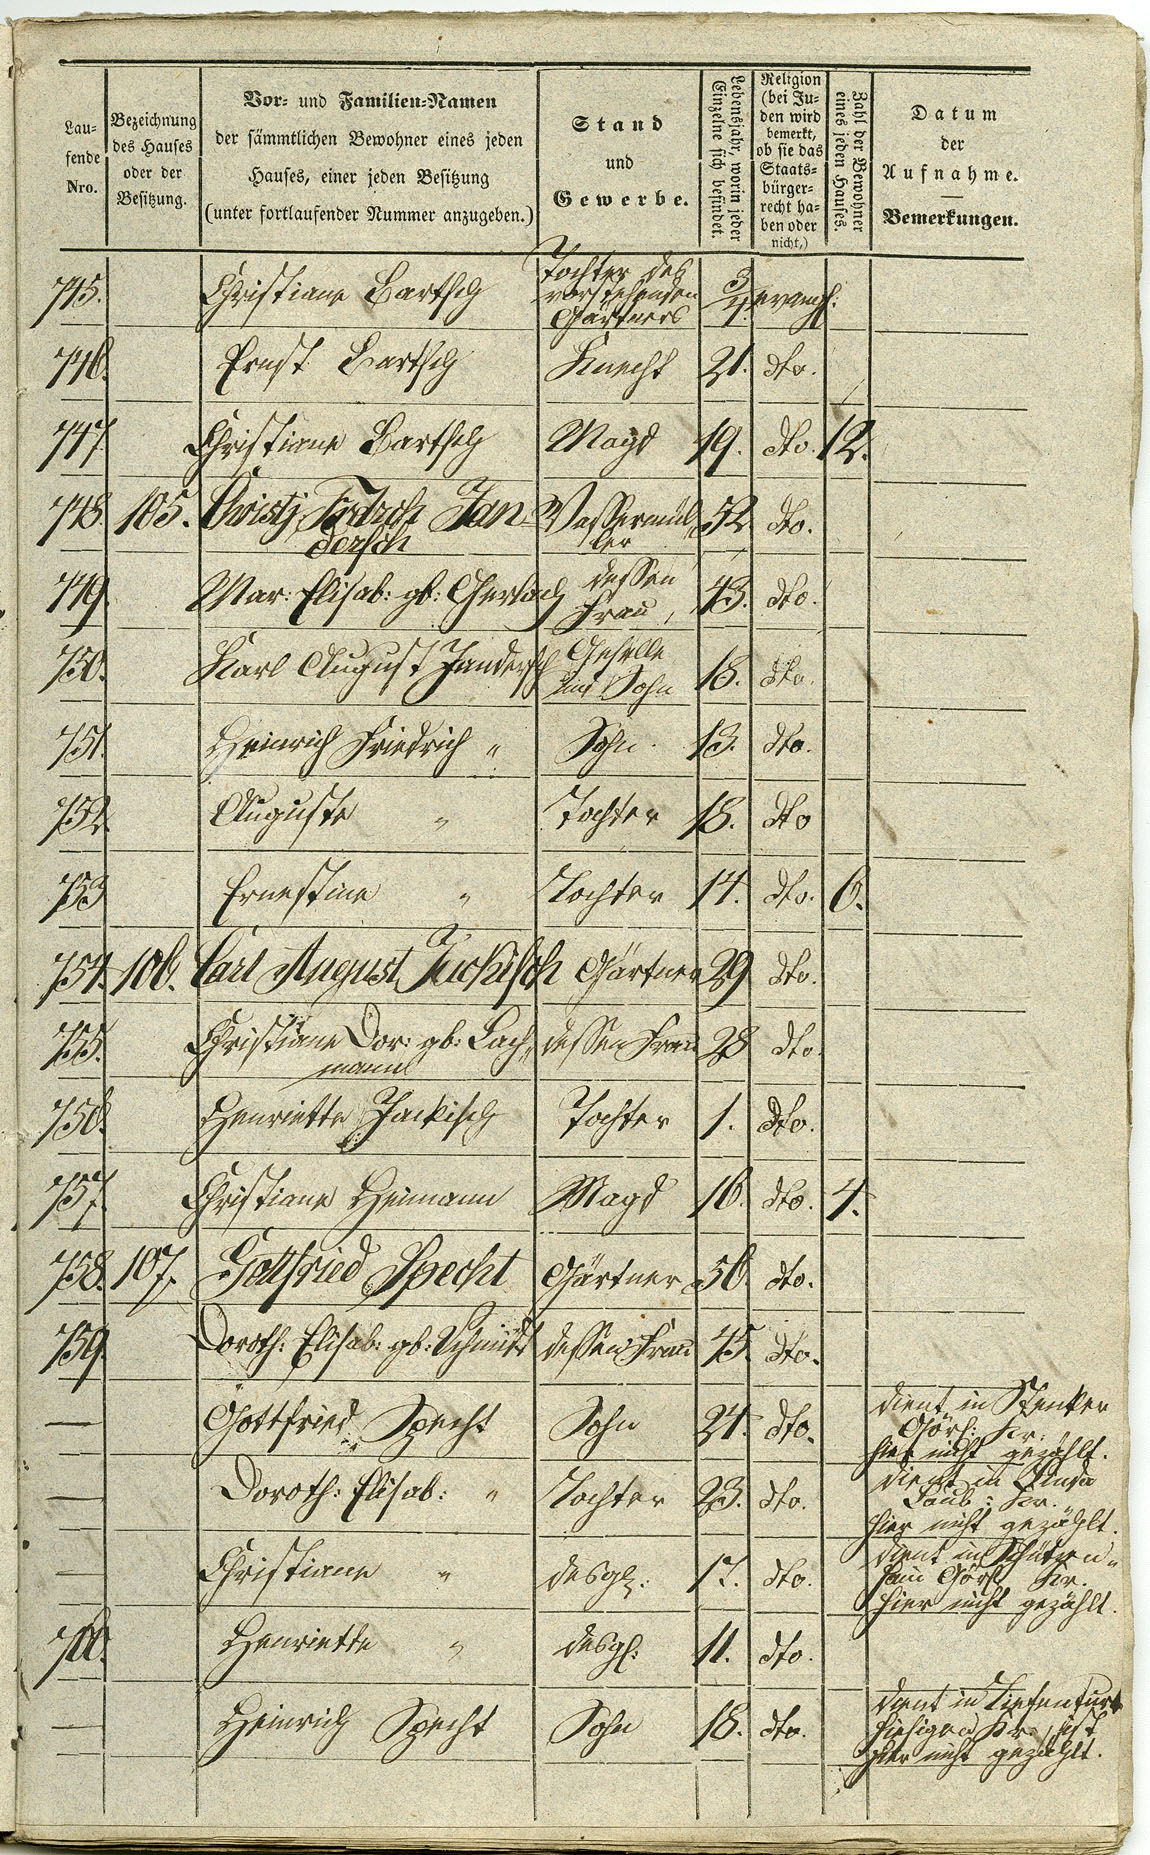 Lau-
fende
Nro.
Bezeichnung
des Hauses
oder der
Besitzung.
Vor- und Familien-Namen
der sämmtlichen Bewohner eines jeden
Hauses, einer jeden Besitzung
(unter fortlaufender Nummer anzugeben.)
Stand
und
Gewerbe.
Lebensjahr, worin jeder
Einzelne sich befindet.
Religion
(bei Ju-
den wird
bemerkt,
ob sie das
Staats-
bürger-
recht ha-
ben oder
nicht,)
Zahl der Bewohner
eines jeden Hauses.
Datum
der
Aufnahme.
Bemerkungen.
745. Christiane Bartsch Tochter des vorstehenden Gärtners 3/4 evangl.
746. Ernst Bartsch Knecht 21. dto.
747. Christiane Bartsch Magd 19. dto. 12.
748. 105. Jan- Wassermül- 52 dto.
dersch ler
749. Mar: Elisab: gb: Gerlach dessen Frau, 43. dto.
750. Karl August Jandersch Geselle und Sohn 18. dto.
751. Heinrich Friedrich " Sohn. 13. dto.
752. Auguste " Tochter 18. dto
753 Ernestine " Tochter 14. dto. 6.
754. 106. Carl August Jackisch Gärtner 29 dto.
755. Christiane Dor: gb: Lach- dessen Frau 28 dto.
mann
756. Henriette Jackisch Tochter 1. dto.
757. Christiane Heimann Magd 16. dto. 4.
758. 107. Gottfried Specht Gärtner 56. dto.
759. Doroth: Elisab: gb: Schmidt dessen Frau 45. dto.
— Gottfried Specht Sohn 24. dto. dient in Stenker
Görl: Kr.
hier nicht gezählt.
— Doroth: Elisab: " Tochter 23. dto. dient in Linda
Laub: Kr.
hier nicht gezählt.
— Christiane " desgl. 17. dto. dient in Schützen-
hain Görl Kr.
hier nicht gezählt.
760. Henriette " desgl: 11. dto.
— Heinrich Specht Sohn 18. dto. dient in Tiefenfurt
hiesigen Kr., ist
hier nicht gezählt.